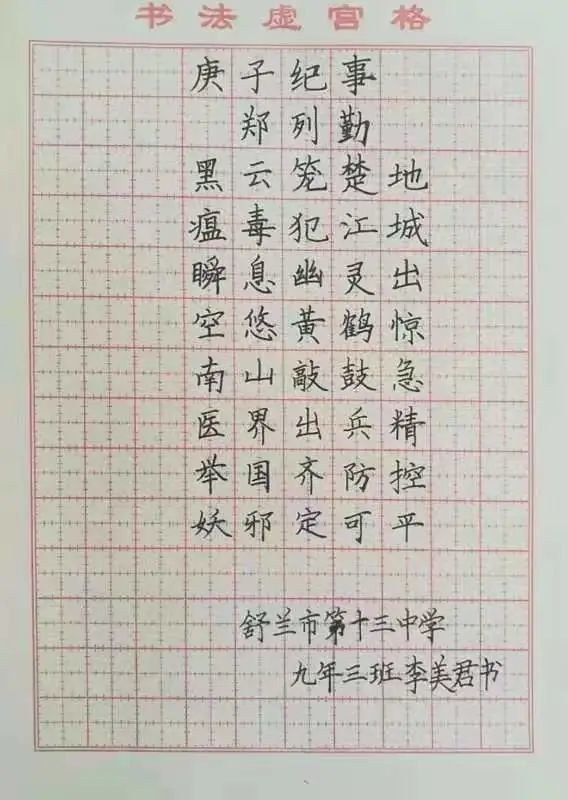 书法虚宫格
庚子纪事
郑列勤
黑云笼楚地
瘟毒犯江城
瞬息幽灵出
空悠黄鹤惊
南山敲鼓急
医界出兵精
举国齐防控
妖邪定可平
舒兰市第十三中学
九年三班李美君书